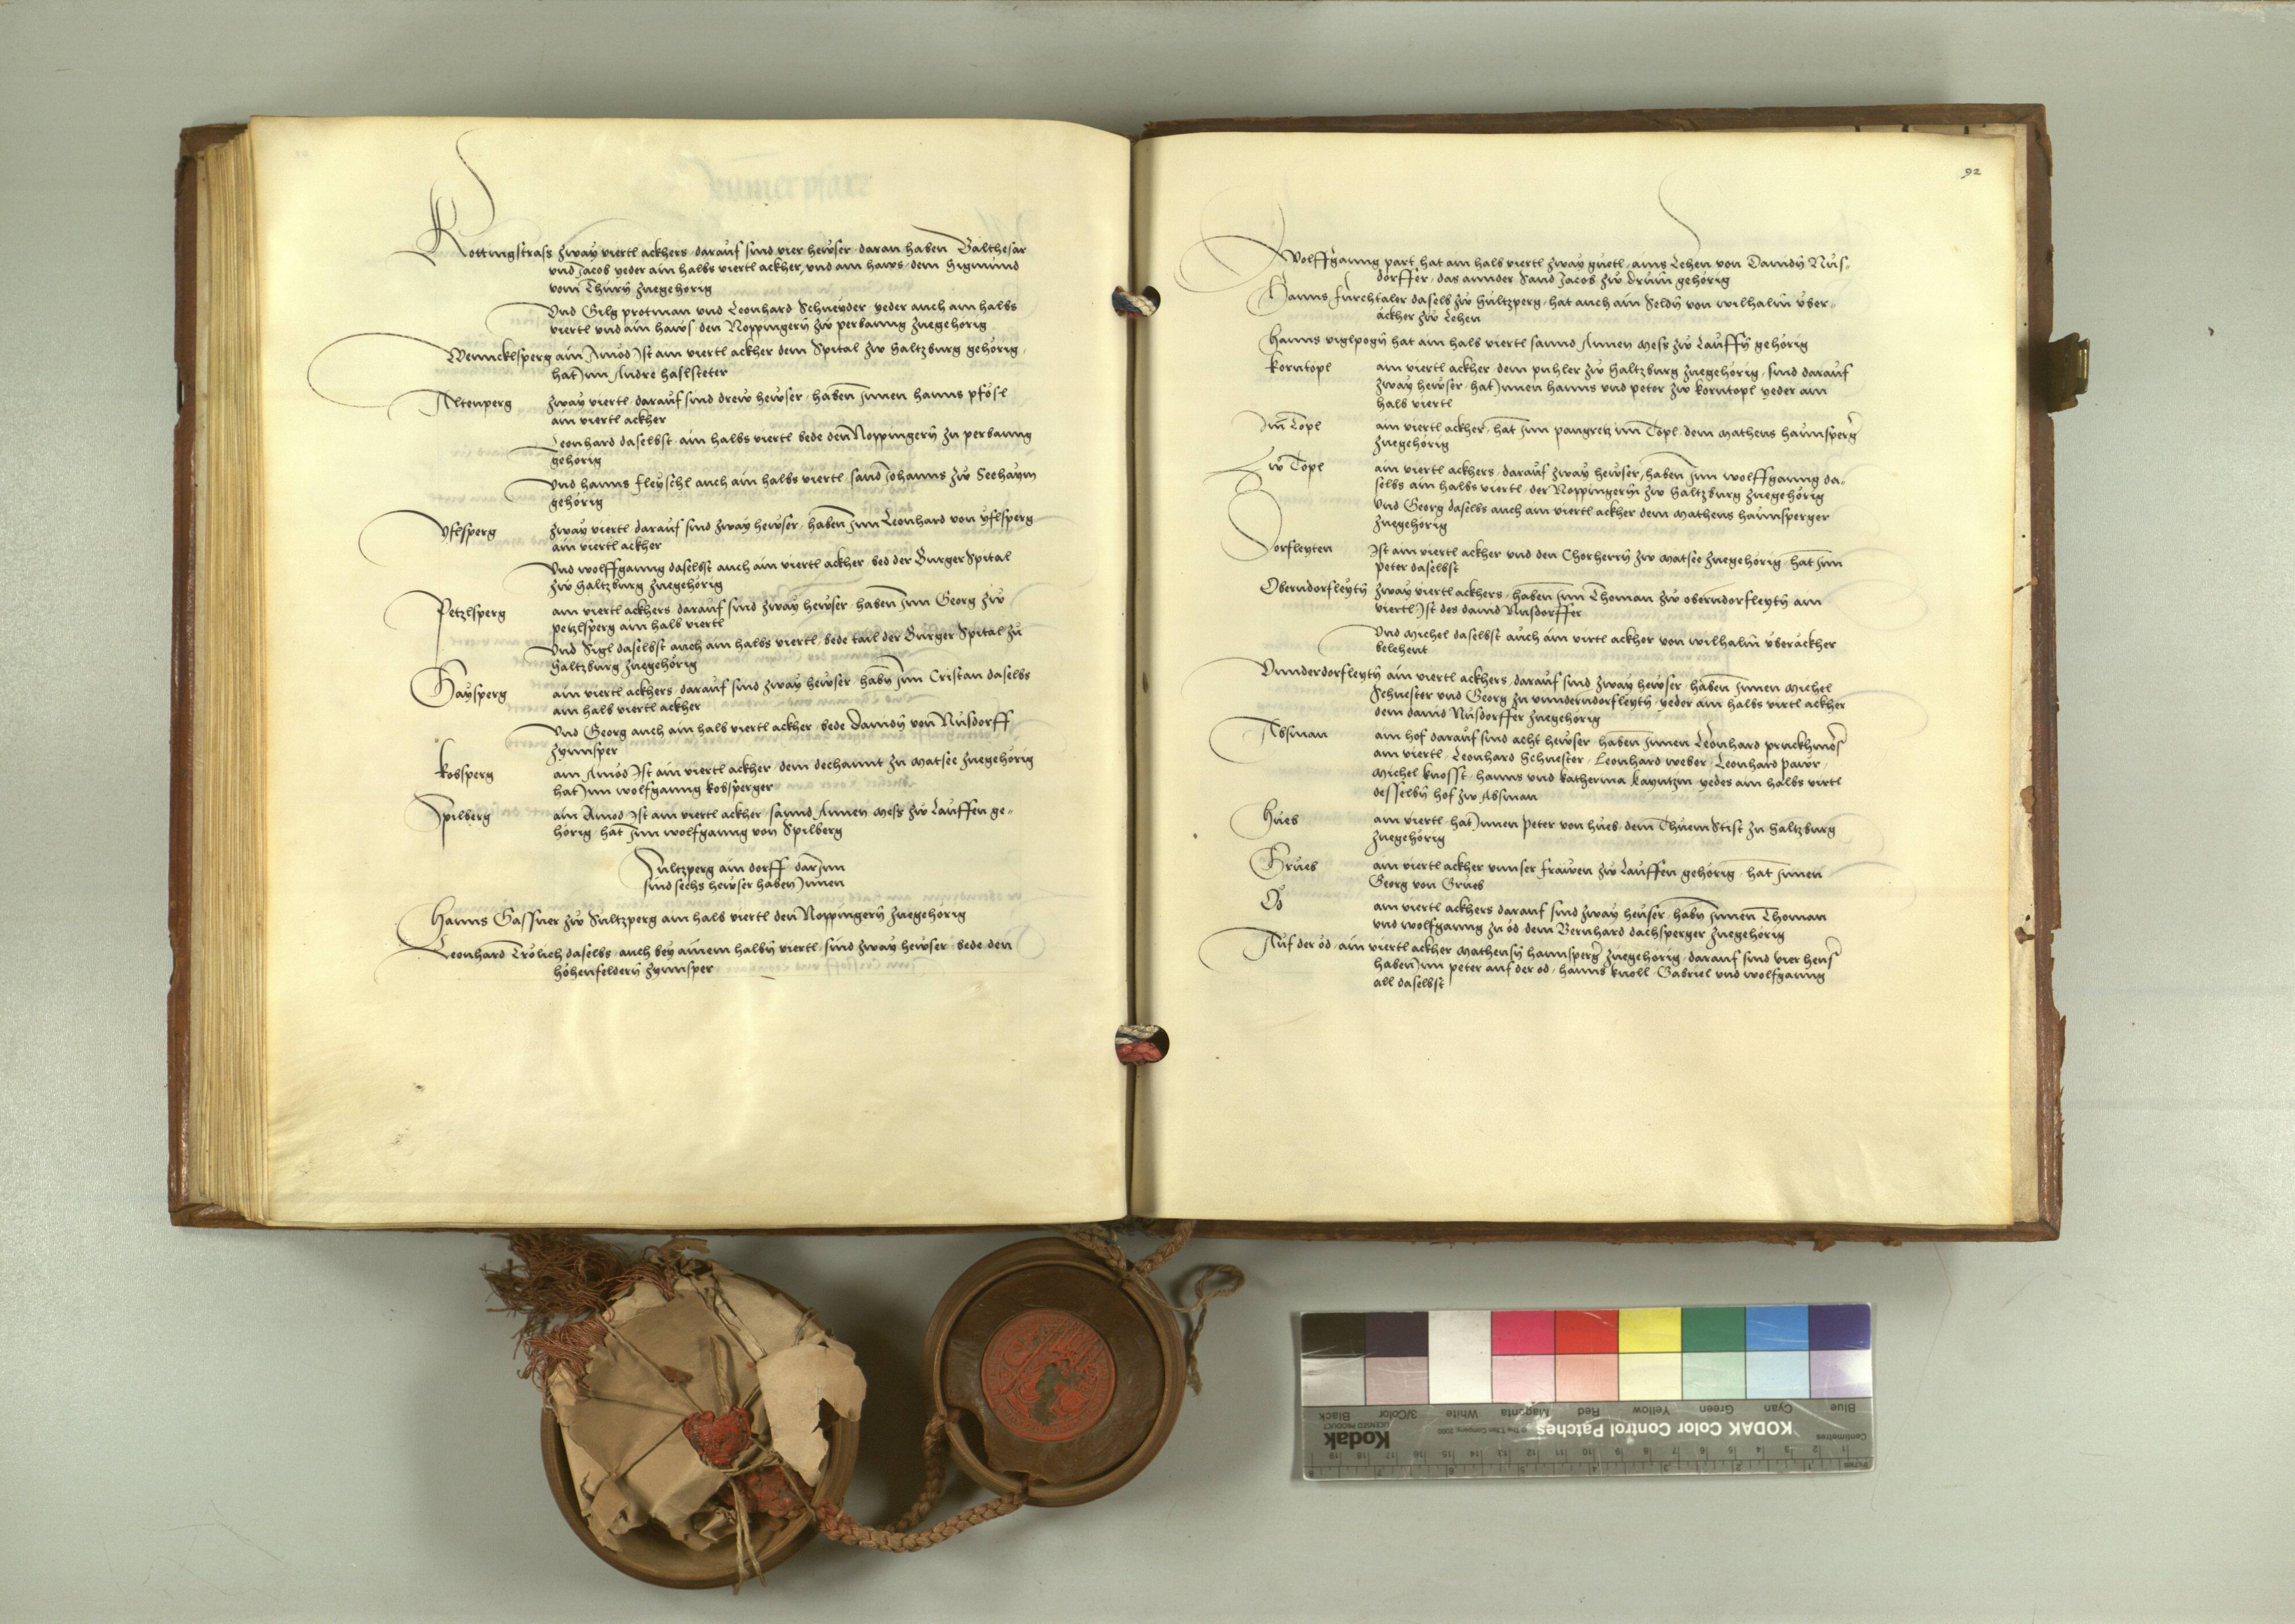 Rottingstrass zway viertl ackhers darauf sind vier hewser daran haben Balthesar
und Jacob yeder ain halbs viertl ackher, und ain haws dem Sigmund
vom Thurn zuegehorig
Und Gilg protman und Leonhard Schneyder yeder auch ain halbs
viertl und ain haws den Noppingern zw perbanng zuegehorig
Wenncklsperg ain Amod Ist ain viertl ackher dem Spital zw Saltzburg gehörig,
hat Inn Andre haslsteter
Altenperg zway viertl darauf sind drew hewser haben Innen hanns pfosl
ain viertl ackher
Leonhard daselbst ain halbs viertl bede den Noppingern zu perbanng
gehörig
Und hanns fleyschl auch ain halbs viertl sand Johanns zw Seehaym
gehörig
Yflsperg zway viertl darauf sind zway hewser haben Inn Leonhard von yflsperg
ain viertl ackher
Und wolffganng daselbst auch ain viertl ackher bed der Burger Spital
zw Saltzburg zuegehörig
Petzlsperg ain viertl ackhers darauf sind zway hewser haben Inn Georg zw
petzlsperg ain halb viertl
Und Sigl daselbst auch ain halbs viertl, bede tail der Burger Spital zu
Saltzburg zuegehörig
Haysperg ain viertl ackhers darauf sind zway hewser habn Inn Cristan daselbs
ain halb viertl ackher
Und Georg auch ain halb viertl ackher bede Damdn von Nusdorff
zynnsper
kobsperg ain Amod Ist ain viertl ackher dem dechannt zu Matsee zuegehörig
hat Inn wolfgang kobsperger
Spilberg ain Amod Ist ain viertl ackher sannd Annen Mess zw Lauffen ge-
hörig hat Inn wolfganng von Spilberg
Sultzperg ain dorff darInn
sind sechs hewser haben Innen
Hanns Gassner zw Sultzperg ain halb viertl den Noppingern zuegehörig
Leonhard Trölich daselbs auch bey ainem halbn viertl sind zway hewser bede den
hohenfeldern zynnsper
92
Wolffganng part hat ain halb viertl zway guetl, ains Lehen von Damdn Nus-
dorffer, das annder Sand Jacob zw Drum gehörig
Hanns furchtaler daselb zw Sultzperg, hat auch ain Seldn von wilhalm vber-
ackher zw Lehen
Hanns viglpogn hat ain halb viertl sannd Annen Mess zw Lauffn gehörig
korntopl ain viertl ackher dem puhler zw Saltzburg zuegehörig, sind darauf
zway hewser hat Innen hanns und peter zw korntopl yeder ain
halb viertl
Im Topl ain viertl ackher, hat Inn pangretz im Topl dem Mathens haunsperger
zuegehörig
Zw Topl ain viertl ackhers darauf zway hewser, haben Inn wolffganng da-
selbs ain halbs viertl der Noppingern zw Saltzburg zuegehörig
Und Georg daselbs auch ain viertl ackher dem Mathens haunsperger
zuegehörig
Dorfleyten Ist ain viertl ackher und den Chorherrn zw Matsee zuegehörig hat Inn
peter daselbst
Oberndorfleytn zway viertl ackhers haben Inn Thoman zw oberndorfleytn ain
viertl Ist des david Nusdorffer
Und Michel daselbst auch ain virtl ackher von wilhalm vberackher
belehent
Vnnderdorfleytn ain viertl ackhers darauf sind zway hewser haben Innen Michel
Schuester und Georg zu vnnderndorfleytn yeder ain halbs virtl ackher
dem david Nusdorffer zuegehörig
Absman ain hof darauf sind acht hewser haben Innen Leonhard pruckhmoser
ain viertl Leonhard Schuester Leonhard weber Leonhard pawr
Michel knosst hanns und katherina kayntzin yedes ain halbs virtl
desselbn hof zw Absman
Hueb ain viertl hat Innen peter von hueb dem Thuem Stift zu Saltzburg
zuegehörig
Grueb ain viertl ackher vnnser frawen zw Lauffen gehörig hat Innen
Georg von Grueb
Öd ain viertl ackhers darauf sind zway heuser habn Innen Thoman
und wolfgang zu öd dem Bernhard dachsperger zuegehörig
Auf der öd ain viertl ackher Mathensn haunsperger zuegehörig darauf sind vier heuser
haben Inn peter auf der öd hanns knoll Gabriel und wolfganng
all daselbst
Kodak
LICENSED PRODUCT
KODAK Color Control Patches
© The Tiffen Company, 2000
Blue Cyan Green Yellow Red Magenta White 3/Color Black
Centimetres
Inches